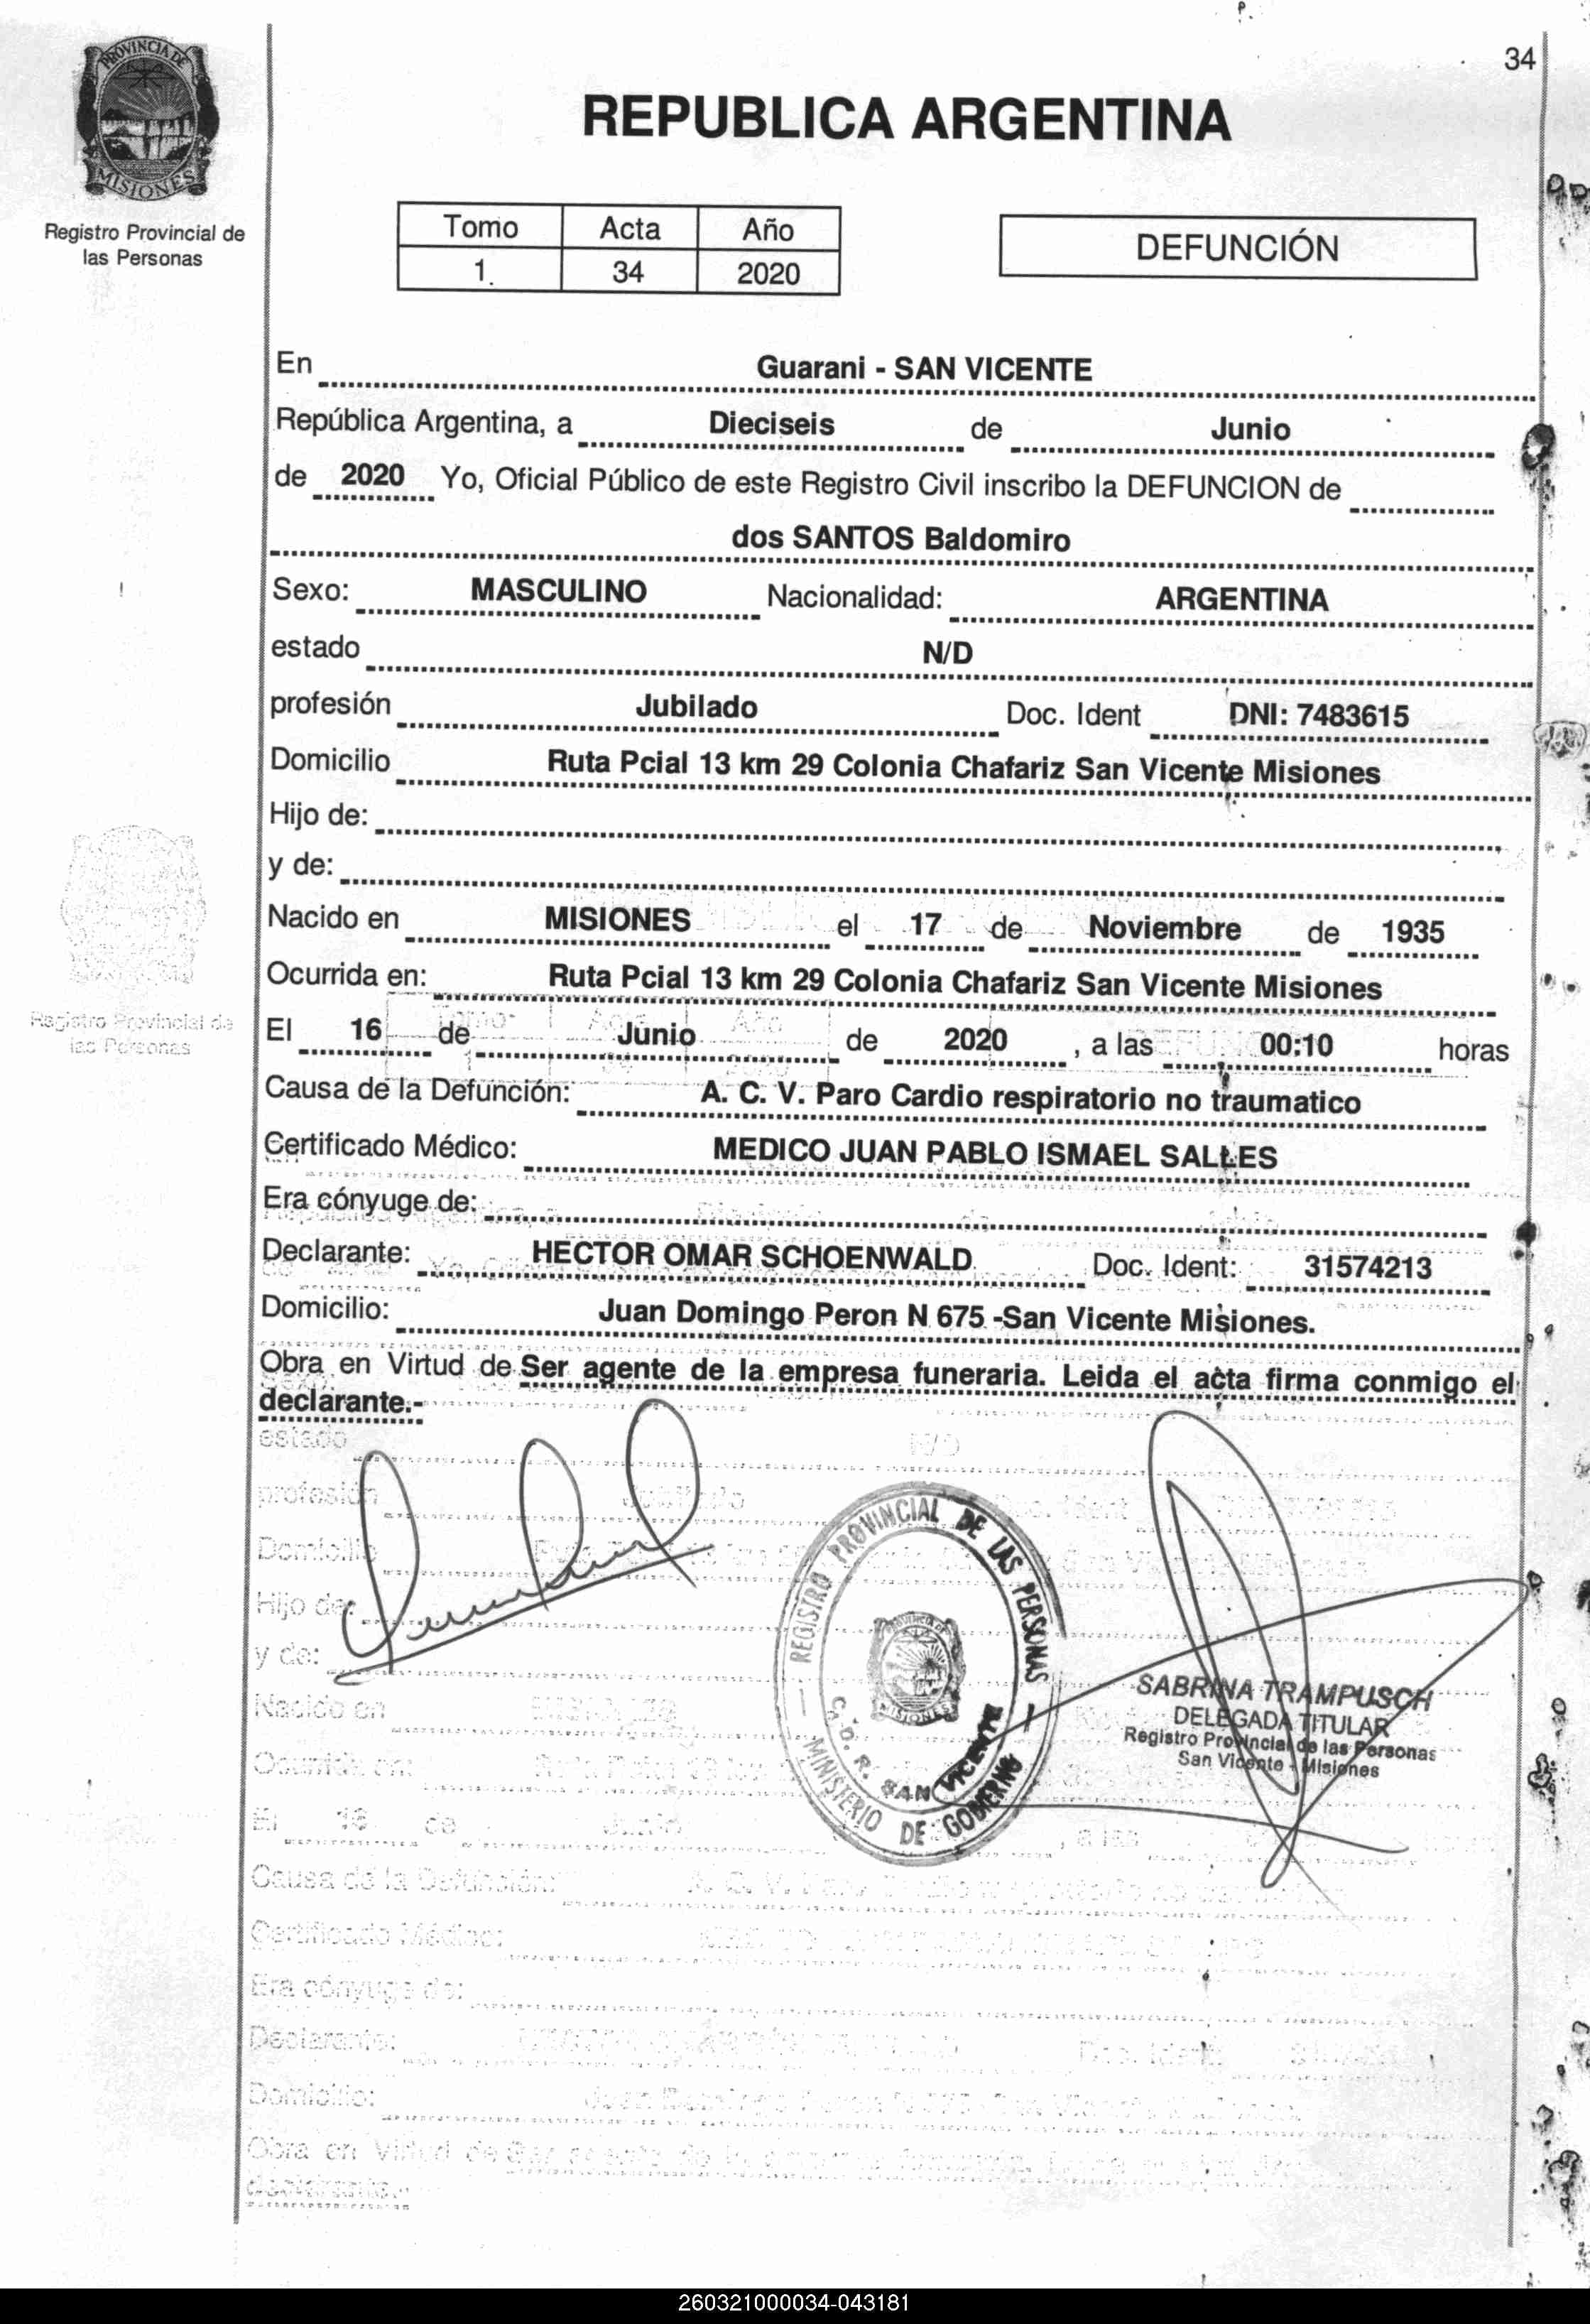 34
PROVINCIA DE
MISIONES
Registro Provincial de
las Personas
REPUBLICA ARGENTINA
Tomo Acta Año
1. 34 2020
DEFUNCIÓN
En Guarani - SAN VICENTE
República Argentina, a Dieciseis de Junio
de 2020 Yo, Oficial Público de este Registro Civil inscribo la DEFUNCION de
dos SANTOS Baldomiro
Sexo: MASCULINO Nacionalidad: ARGENTINA
estado N/D
profesión Jubilado Doc. Ident DNI: 7483615
Domicilio Ruta Pcial 13 km 29 Colonia Chafariz San Vicente Misiones
Hijo de:
y de:
Nacido en MISIONES el 17 de Noviembre de 1935
Ocurrida en: Ruta Pcial 13 km 29 Colonia Chafariz San Vicente Misiones
El 16 de Junio de 2020 , a las 00:10 horas
Causa de la Defunción: A. C. V. Paro Cardio respiratorio no traumatico
Certificado Médico: MEDICO JUAN PABLO ISMAEL SALLES
Era cónyuge de:
Declarante: HECTOR OMAR SCHOENWALD Doc. Ident: 31574213
Domicilio: Juan Domingo Peron N 675 -San Vicente Misiones.
Obra en Virtud de Ser agente de la empresa funeraria. Leida el acta firma conmigo el
declarante.-
REGISTRO PROVINCIAL DE LAS PERSONAS
PROVINCIA DE
MISIONES
C. D. R. SAN VICENTE
MINISTERIO DE GOBIERNO
SABRINA TRAMPUSCH
DELEGADA TITULAR
Registro Provincial de las Personas
San Vicente - Misiones
260321000034-043181